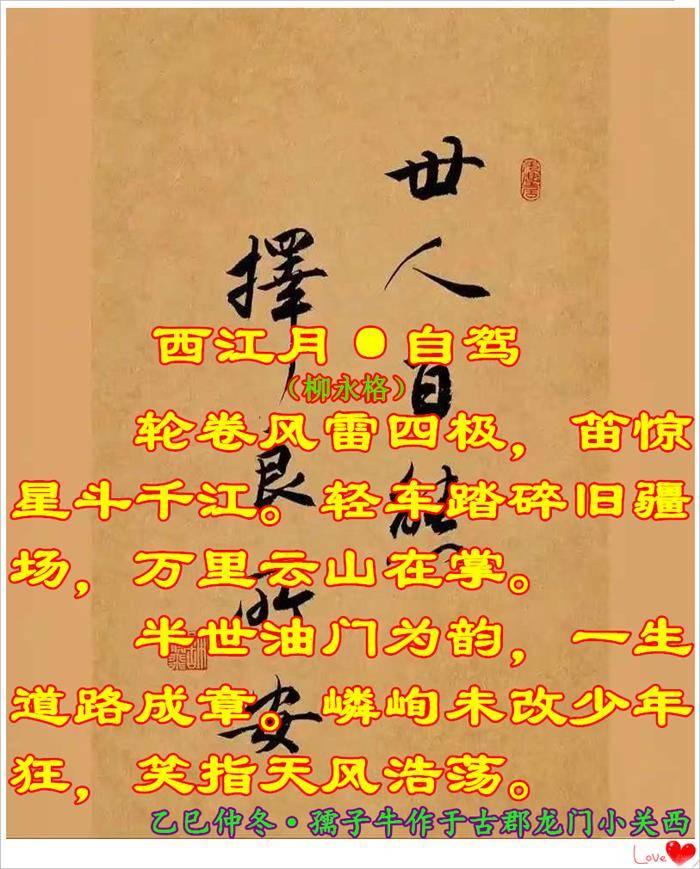 世人
擇
良所安
西江月●自驾
（柳永格）
轮卷风雷四极，笛惊
星斗千江。轻车踏碎旧疆
场，万里云山在掌。
半世油门为韵，一生
道路成章。嶙峋未改少年
狂，笑指天风浩荡。
乙巳仲冬·孺子牛作于古郡龙门小关西
Love